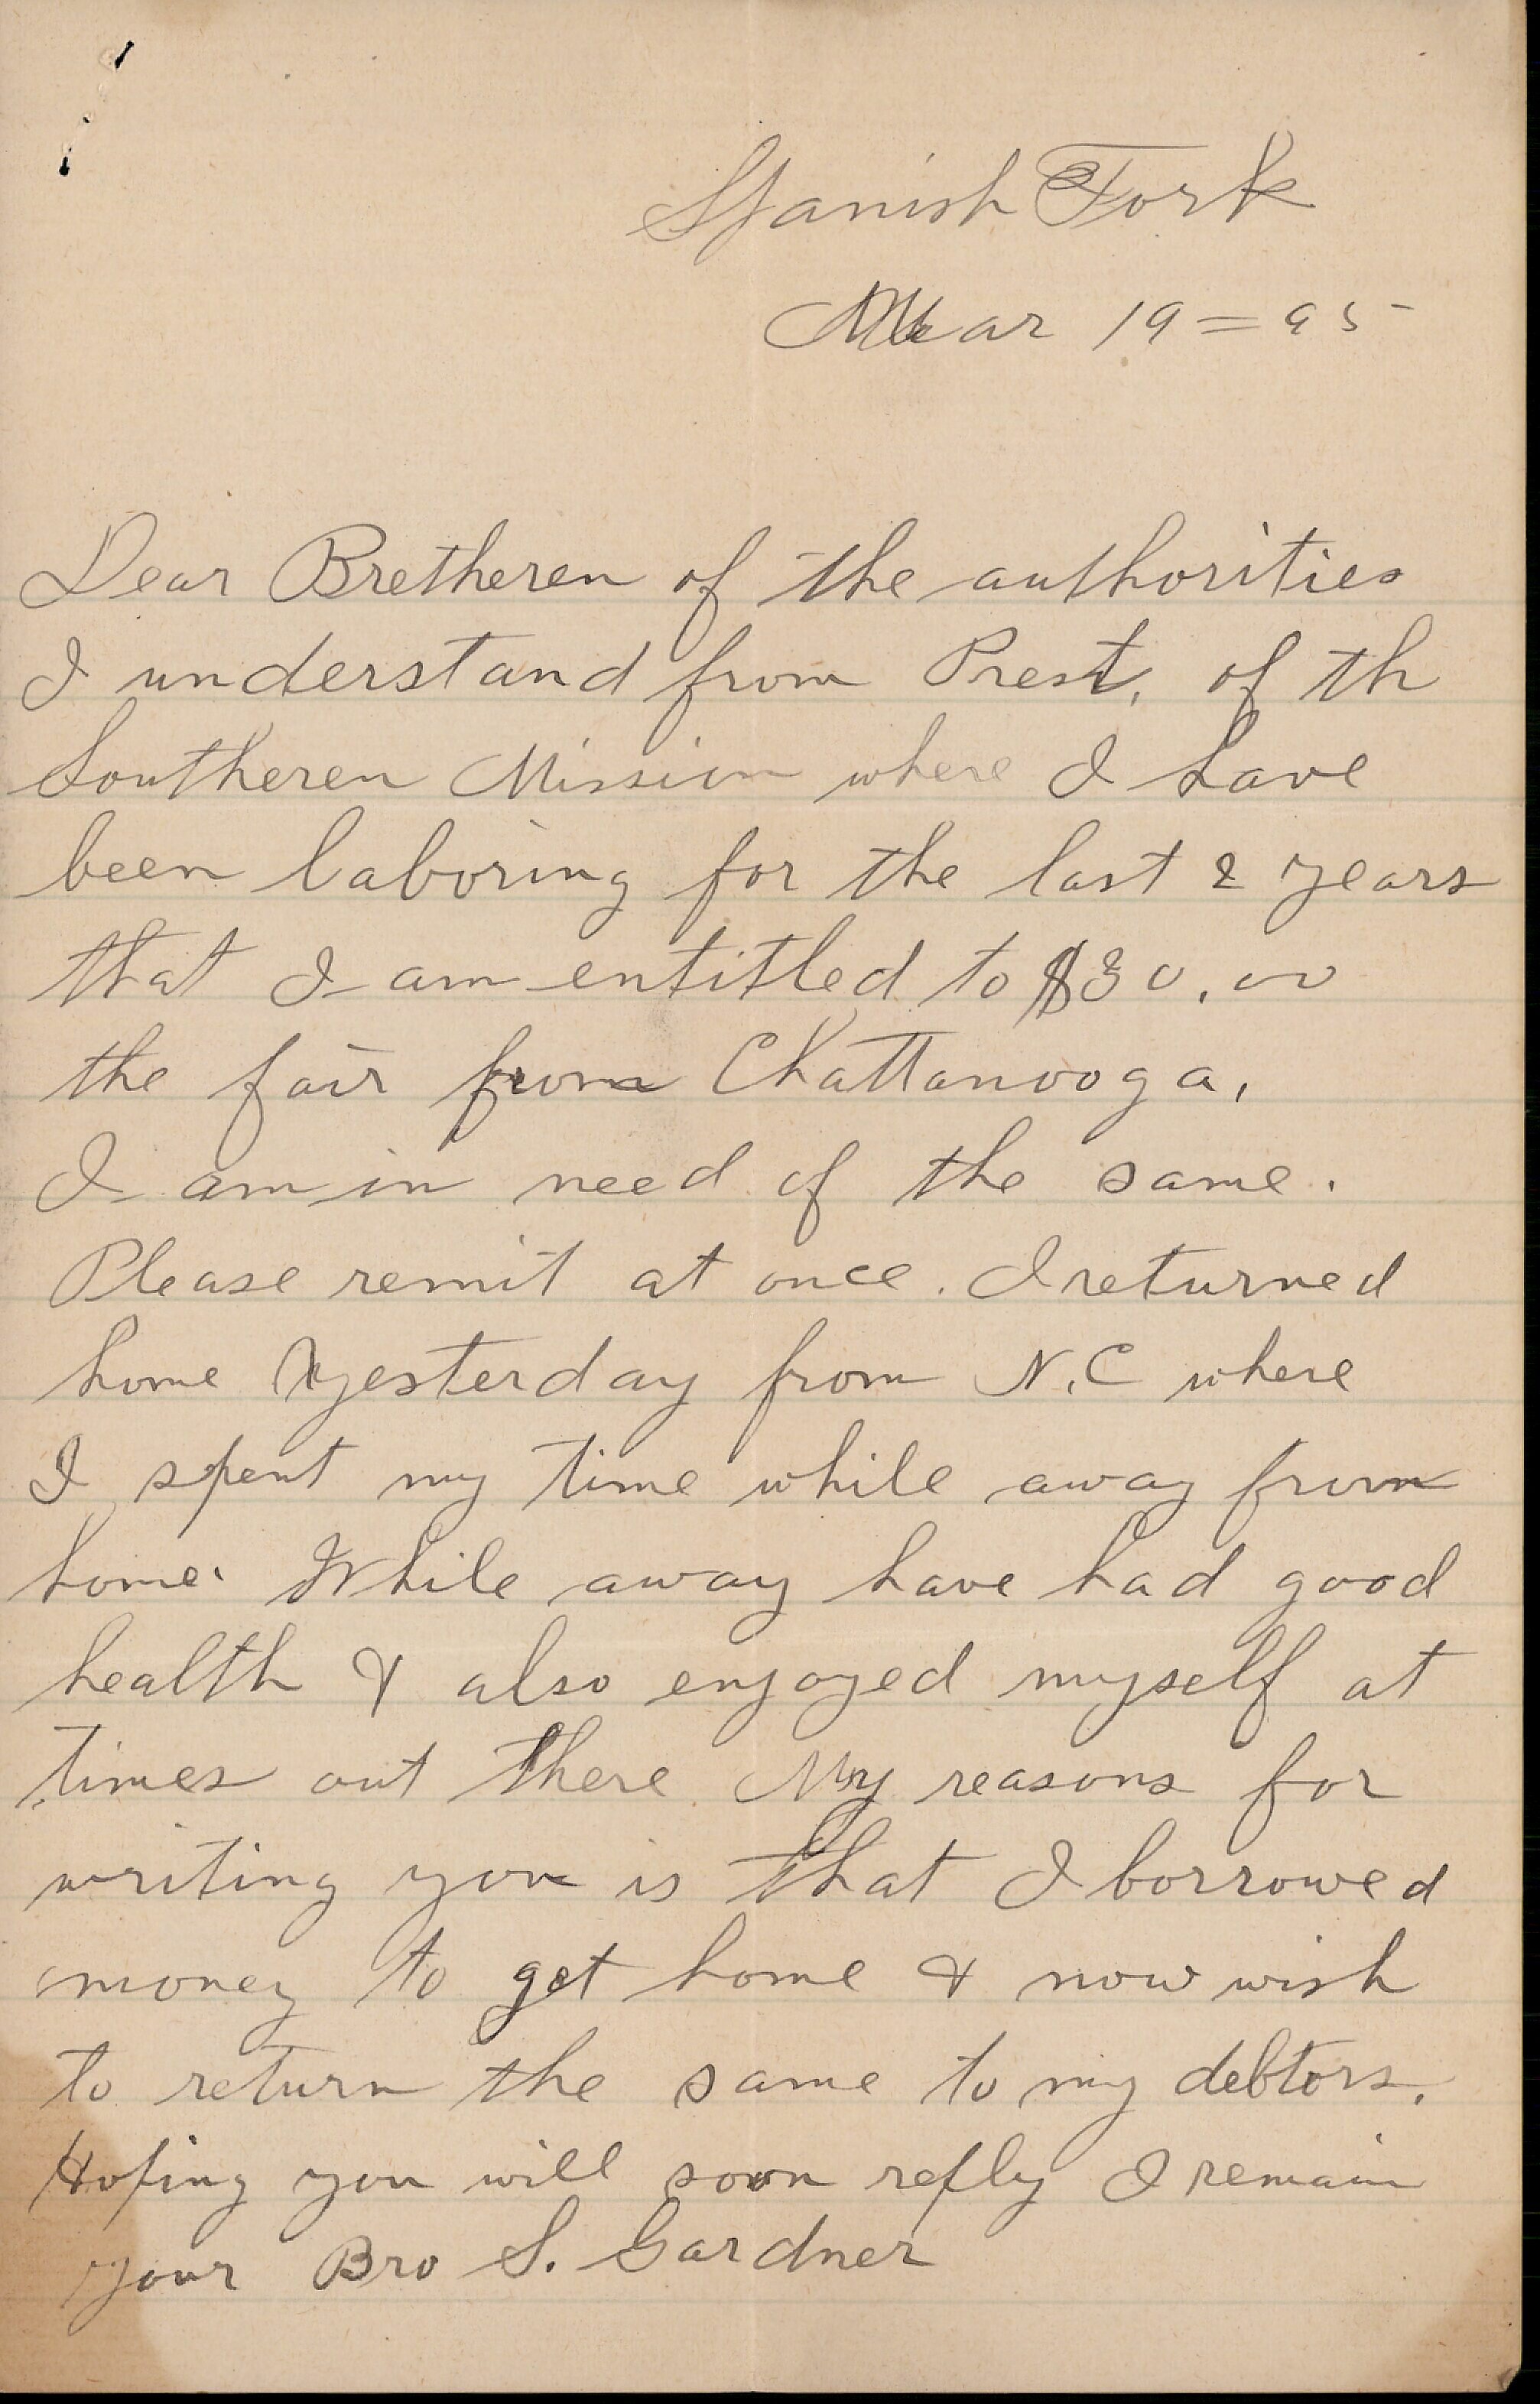 Spanish Fork
Mar 19=95
Dear Bretheren of the authorities
I understand from Prest, of th
Southeren Mission where I have
been laboring for the last 2 years
that I am entitled to $30.00
the fair from Chattanooga,
I am in need of the same.
Please remit at once. I returned
home yesterday from N.C where
I spent my time while away from
home. While away have had good
health & also enjoyed myself at
times out there. My reasons for
writing you is that I borrowed
money to get home & now wish
to return the same to my debtors.
Hoping you will soon reply I remain
your Bro S. Gardner